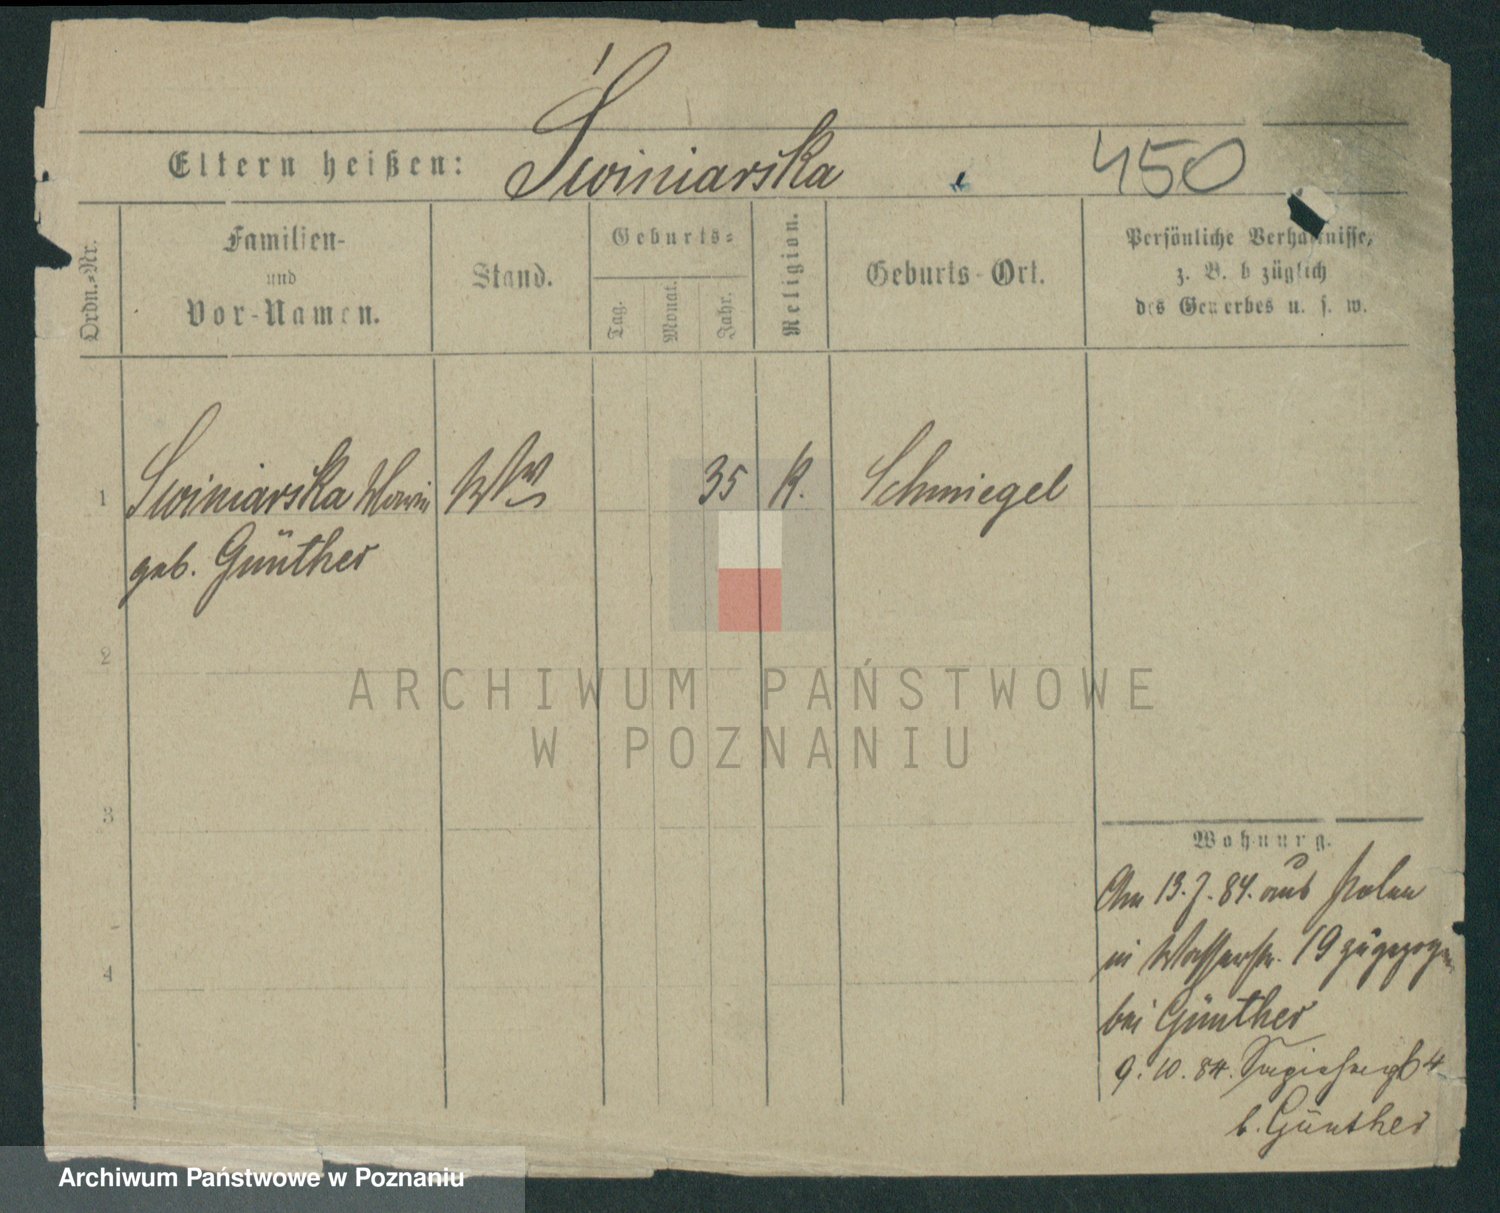 Eltern heißen: Świniarska 450
Ordn.-Nr.
Familien-
und
Vor-Namen.
Stand.
Geburts-
Tag.
Monat.
Jahr.
Religion.
Geburts-Ort.
Persönliche Verhältnisse,
z. B. bezüglich
des Gewerbes u. s. w.
1 Swiniarska Ww 35 K. Schmiegel
geb. Günther
2
3
4
Wohnung.
Am 13.7.84. aus Polen
in Wasserstr. 19 zugezogen
bei Günther
9.10.84. 4
b. Günther
ARCHIWUM PAŃSTWOWE
W POZNANIU
Archiwum Państwowe w Poznaniu